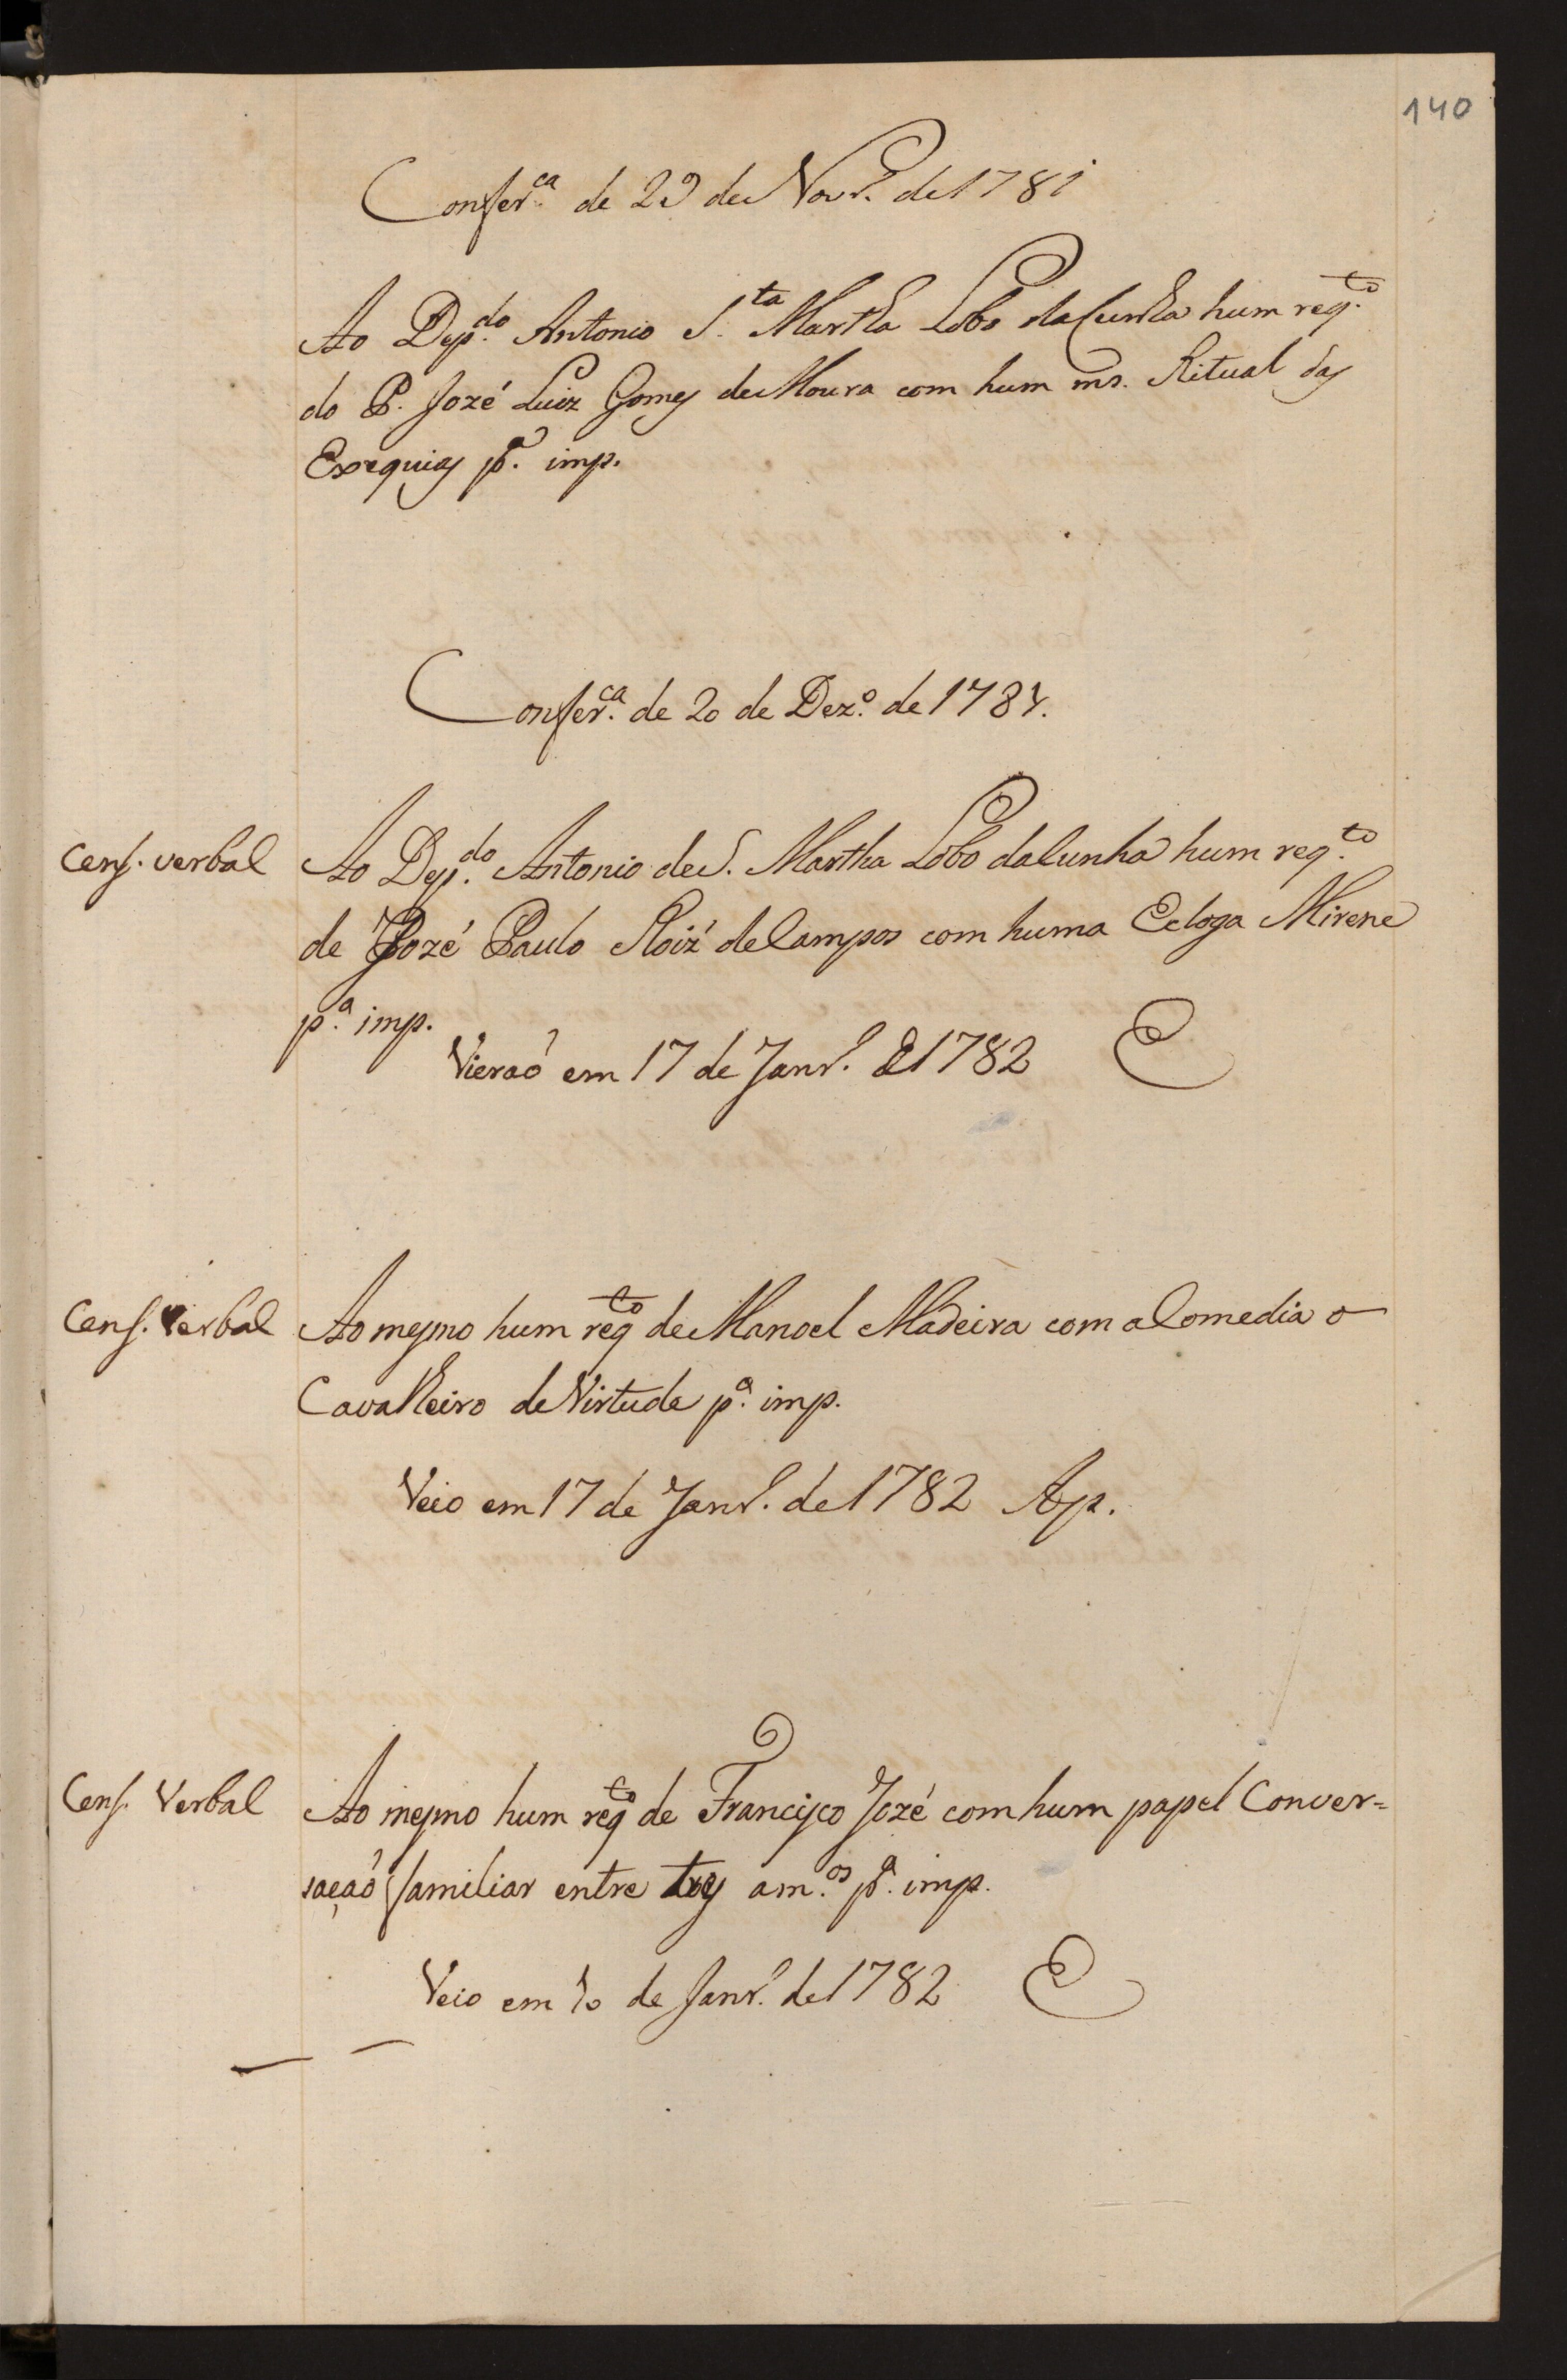 140
Confer.ca de 29 de Nov.ro de 1781
Ao Dep.do Antonio S.ta Martha Lobo da Cunha hum req.to
do P. Jozé Luiz Gomes de Moura com hum ms. Ritual das
Exequias p.a imp.
Confer.ca de 20 de Dez.o de 1781.
Cens. verbal Ao Dep.do Antonio de S. Martha Lobo da Cunha hum req.to
de Jozé Paulo Roiz' de Campos com huma Ecloga Mirene
p.a imp.
Vieraõ em 17 de Janr.o de 1782 E
Cens. Verbal Ao mesmo hum req.to de Manoel Madeira com a Comedia o
Cavalheiro de Virtude p.a imp.
Veio em 17 de Janr.o de 1782 Ap.
Cens. Verbal Ao mesmo hum req.to de Francisco Jozé com hum papel Conver=
saçaõ familiar entre tres am.os p.a imp.
Veio em 10 de Janr.o de 1782 E